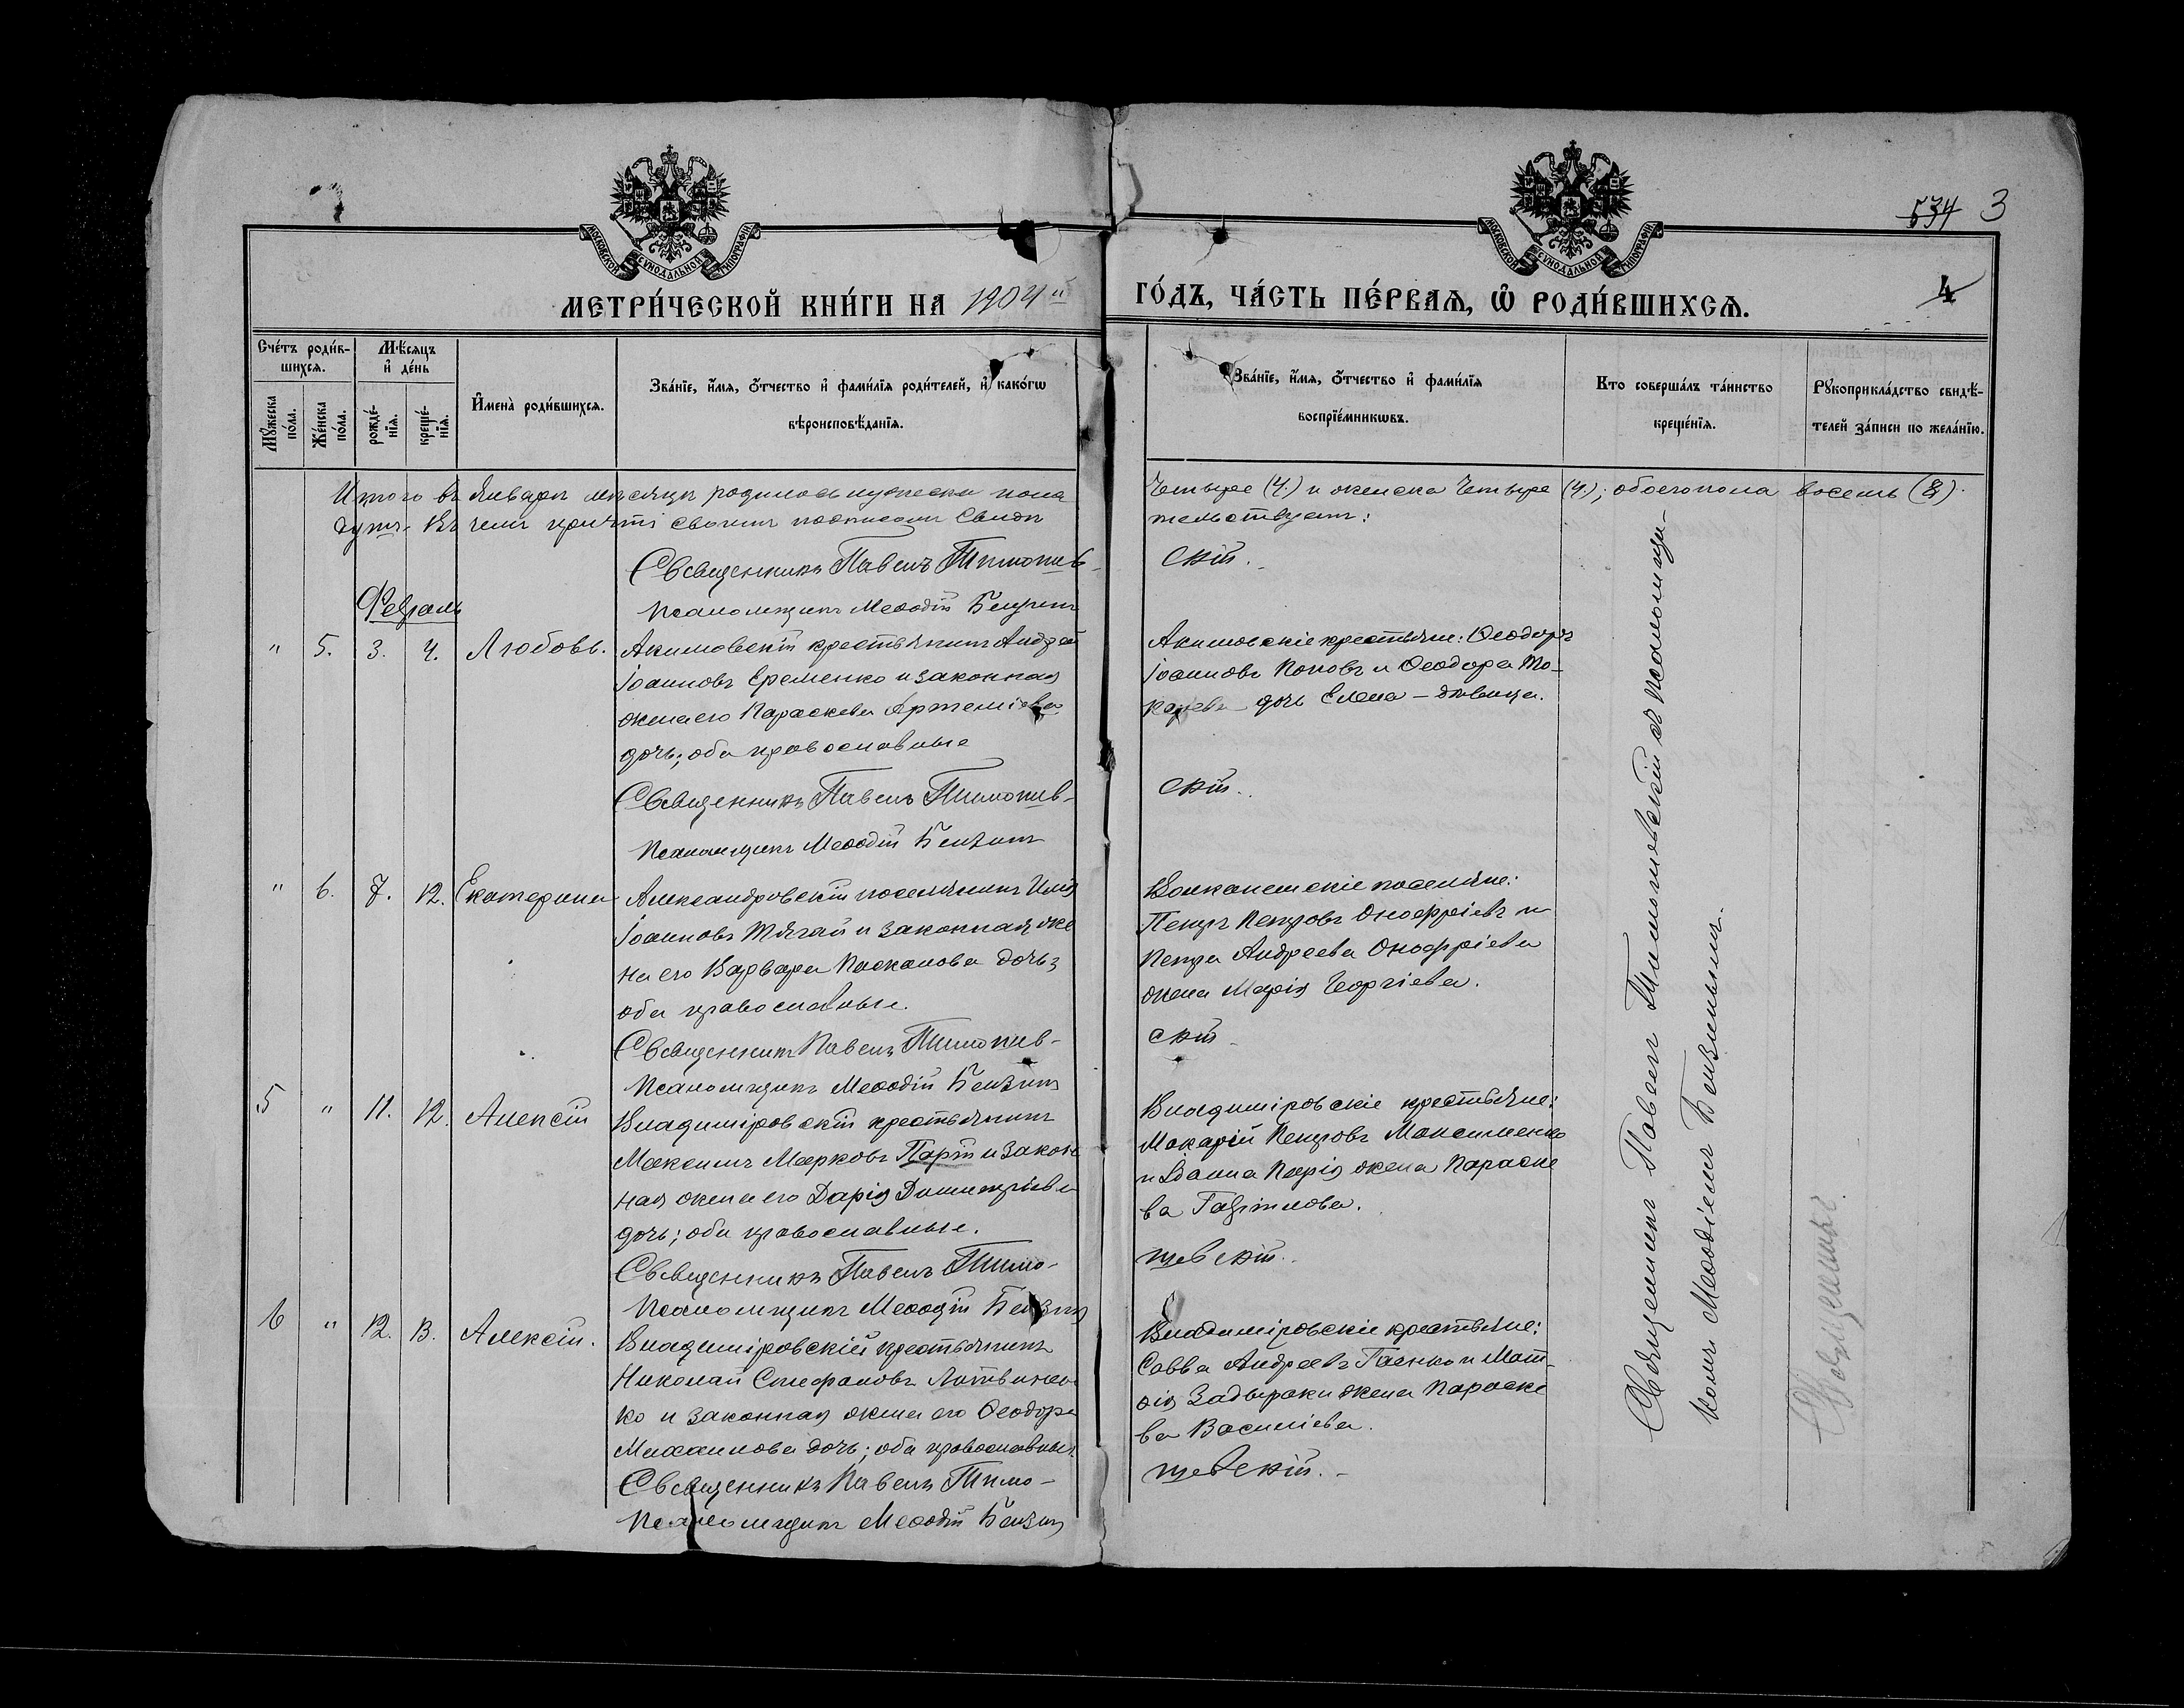 534 3
МОСКОВСКОЙ СУНОДАЛЬНОЙ ТИПОГРАФІИ
МОСКОВСКОЙ СУНОДАЛЬНОЙ ТИПОГРАФІИ
МЕТРИ́ЧЕСКОЙ КНИ́ГИ НА 1904й
ГО́ДЪ, ЧА́СТЬ ПЕ́РВАѦ, Ѿ РОДИ́ВШИХСѦ.
4
Сче́тъ роди́в-
шихсѧ.
Мꙋ́жеска по́ла.
Же́нска по́ла.
Мѣ́сѧцъ
и҆ де́нь
рожде́-
нїѧ.
креще́-
нїѧ.
И҆мена̀ роди́вшихсѧ.
Зва́нїе, и҆́мѧ, ѻ҆́тчество и҆ фами́лїѧ роди́телей, и҆ како́гѡ
вѣроисповѣ́данїѧ.
Зва́нїе, и҆́мѧ, ѻ҆́тчество и҆ фами́лїѧ
воспрїе́мникѡвъ.
Кто соверша́лъ та́инство
креще́нїѧ.
Рꙋкоприкла́дство свидѣ́-
телей за́писи по жела́нїю.
Итого въ Январѣ мѣсяцѣ родилось мужеска пола
Четыре (4.) и женска Четыре (4.); обоего пола восемь (8).
душъ. Въ чемъ причтъ своимъ подписомъ Свидѣ
тельствуетъ:
Священникъ Павелъ Тимошев-
скій.
Псаломщикъ Меѳодій Бензинъ
Февраль
" 5. 3. 4. Любовь.
Акимовскій крестьянинъ Андрей
Іоанновъ Еременко и законная
жена его Параскева Артеміева
дочь; оба православные
Акимовскіе крестьяне: Ѳеодоръ
Іоанновъ Поповъ и Ѳеодора То-
карева дочь Елена – дѣвица.
Священникъ Павелъ Тимошев-
скій.
Псаломщикъ Меѳодій Бензинъ
" 6. 7. 12. Екатерина
Александровскій поселянинъ Илія
Іоанновъ Тягай и законная же
на его Варвара Паскалова дочь;
оба православные.
Волканешскіе поселяне:
Петръ Петровъ Онофріевъ и
Петра Андреева Онофріева
жена Марія Георгіева.
Священникъ Павелъ Тимошев-
скій
Псаломщикъ Меѳодій Бензинъ
5 " 11. 12. Алексій
Владиміровскій крестьянинъ
Максимъ Марковъ Парій и закон
ная жена его Дарія Димитріева
дочь; оба православные.
Владиміровскіе крестьяне:
Макарій Петровъ Максименко
и Іоанна Парія жена Параске
ва Гавріилова.
Священникъ Павелъ Тимо-
шевскій.
Псаломщикъ Меѳодій Бензинъ
6 " 12. 13. Алексій.
Владиміровскій крестьянинъ
Николай Стефановъ Литвинен-
ко и законная жена его Ѳеодора
Михаилова дочь; оба православные.
Владиміровскіе крестьяне:
Савва Андреевъ Гаенко и Мат-
ѳія Задыраки жена Параске
ва Василіева.
Священникъ Павелъ Тимо-
шевскій.
Псаломщикъ Меѳодій Бензинъ
Священникъ Павелъ Тимошевскій съ псаломщи-
комъ Меѳодіемъ Бензинымъ.